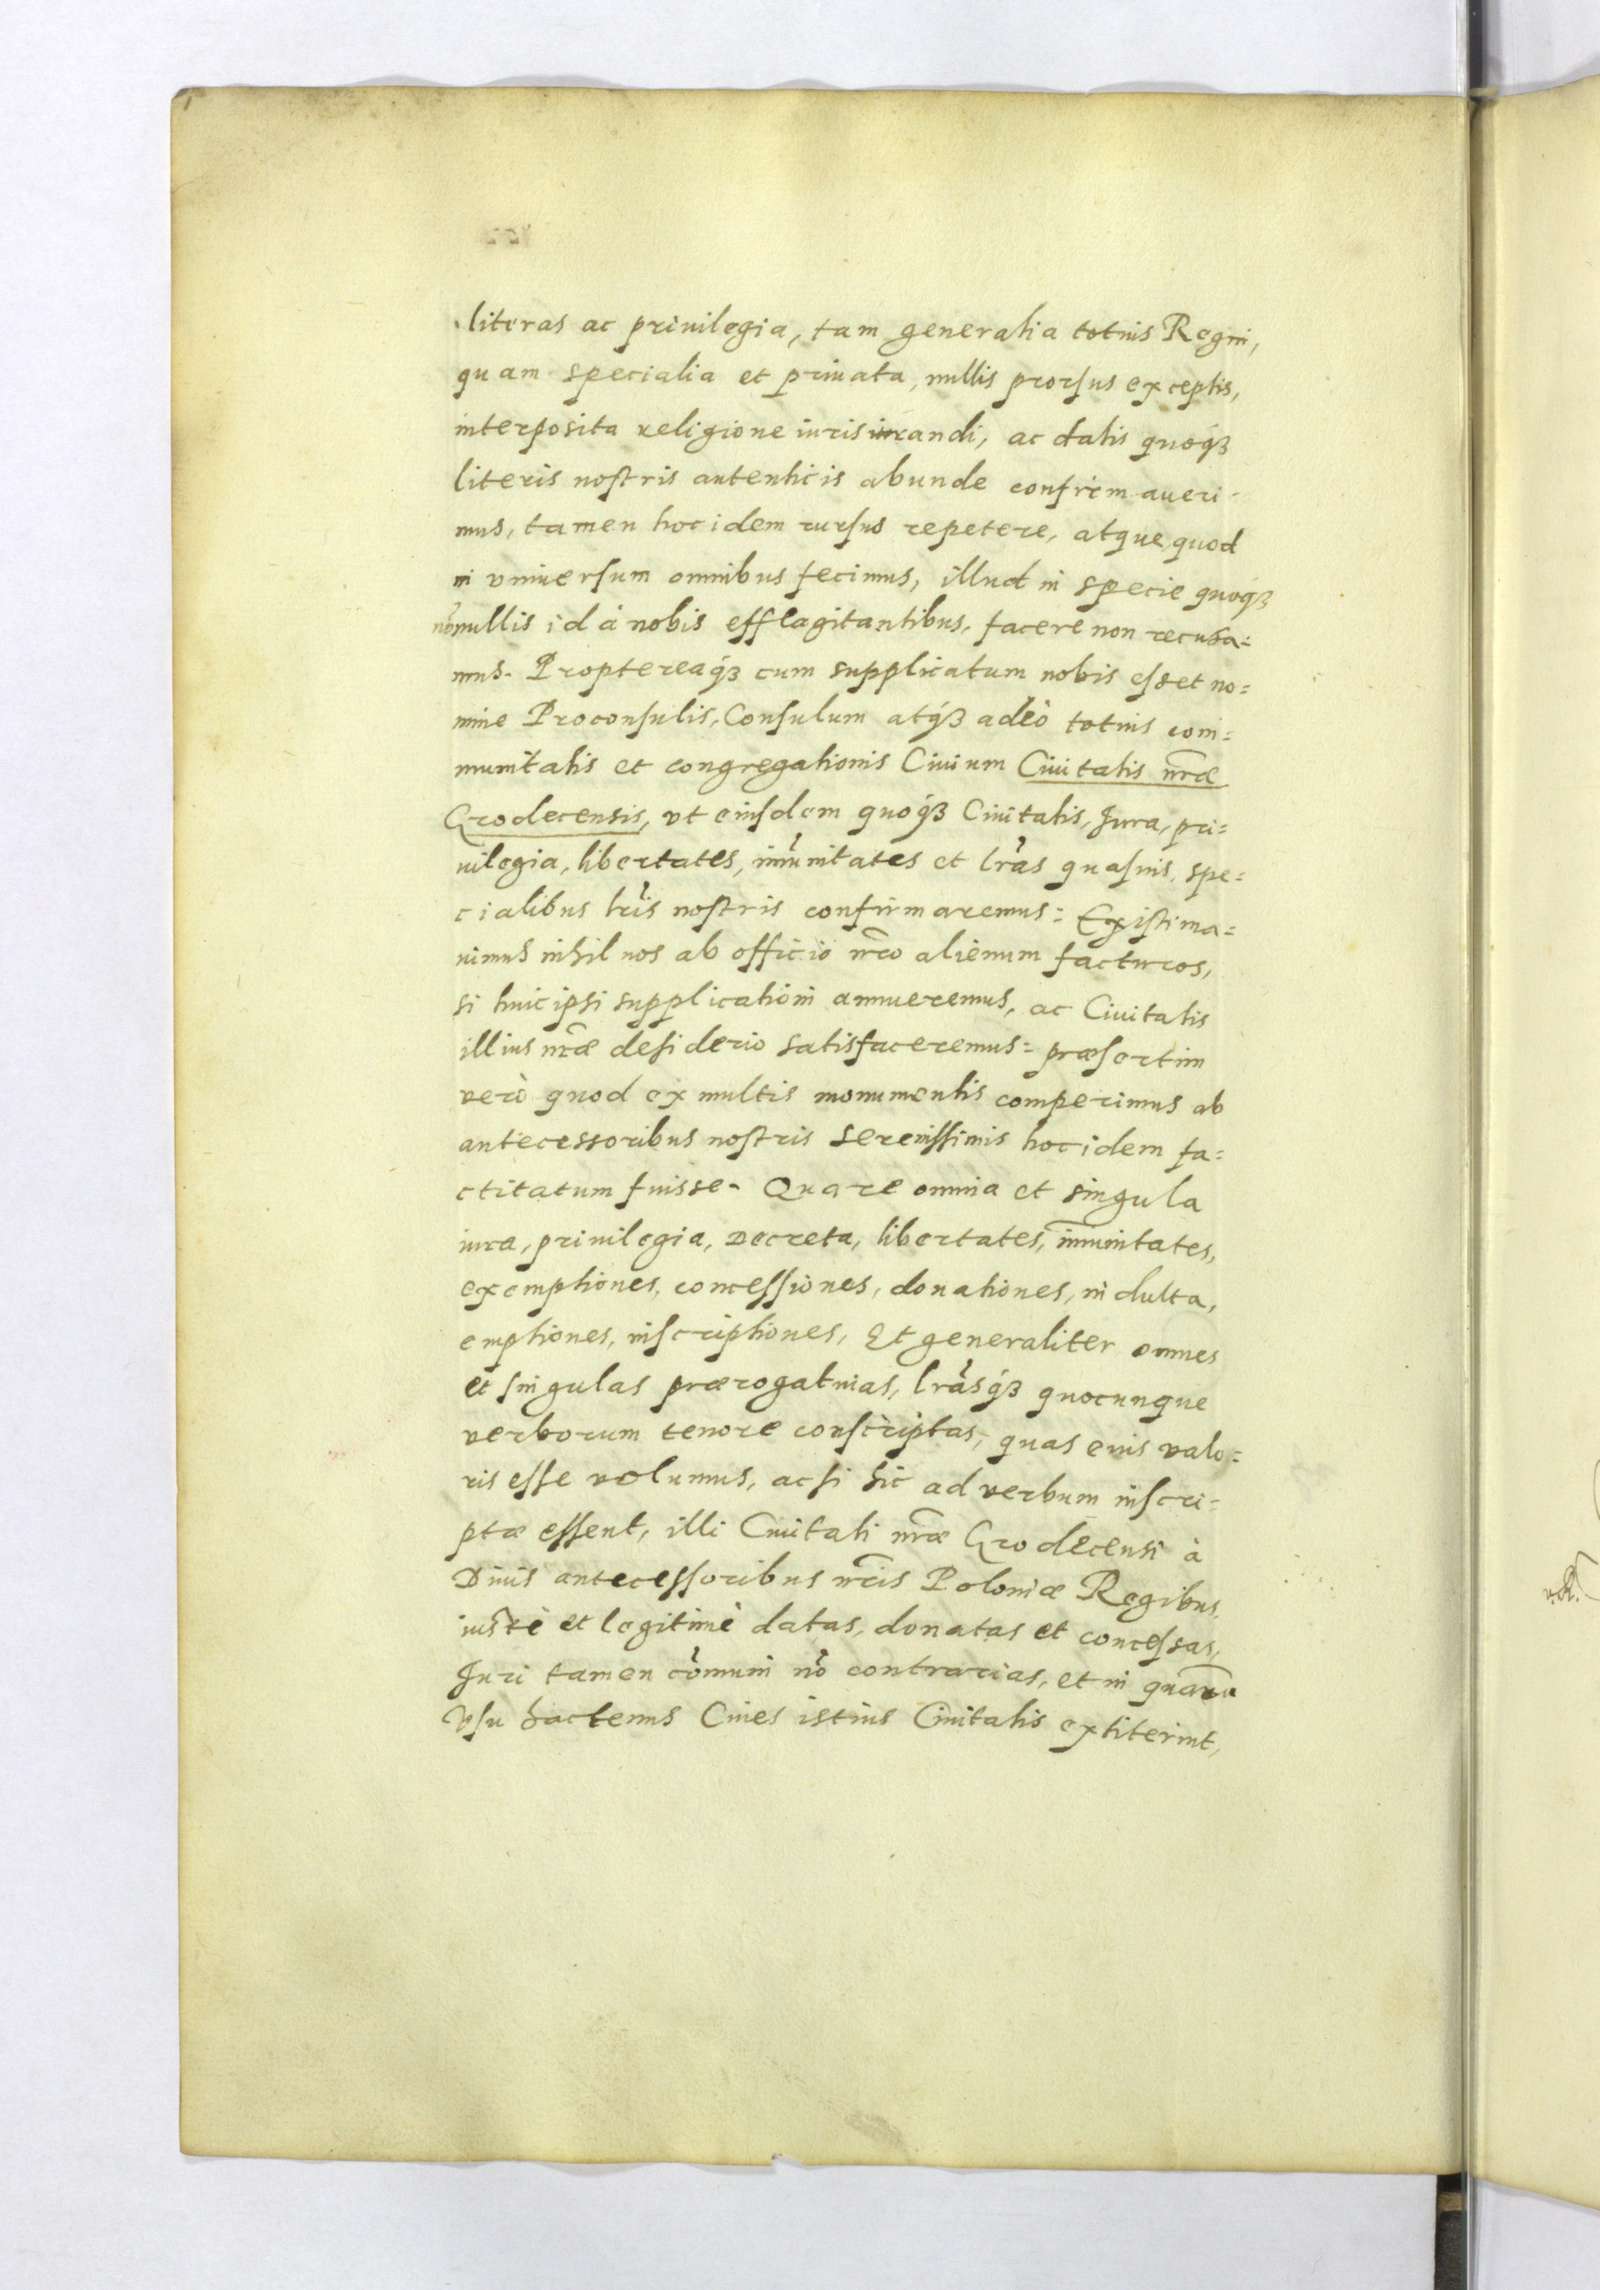 literas ac priuilegia, tam generalia totius Regni,
quam specialia et priuata, nullis prorsus exceptis,
interposita religione iurisiurandi, ac datis quoq₃
literis nostris autenticis abunde confirmaueri-
mus, tamen hoc idem rursus repetere, atque quod
in vniuersum omnibus fecimus, illud in specie quoq₃
nõnullis id à nobis efflagitantibus, facere non recusa=
mus. Proptereaq₃ cum supplicatum nobis esset no=
mine Proconsulis, Consulum atq₃ adeò totius com=
munitatis et congregationis Ciuium Ciuitatis nr̃æ
Grodecensis, vt eiusdem quoq₃ Ciuitatis, Jura, pri=
uilegia, libertates, imũnitates et lrãs quasuis, spe=
cialibus lrĩs nostris confirmaremus: Existima=
uimus nihil nos ab officio nr̃o alienum facturos,
si huic ipsi supplicationi annueremus, ac Ciuitatis
illius nr̃æ desiderio satisfaceremus: præsertim
verò quod ex multis monumentis comperimus ab
antecessoribus nostris serenissimis hoc idem fa=
ctitatum fuisse. Quare omnia et singula
iura, priuilegia, Decreta, libertates, im̃unitates,
exemptiones, concessiones, donationes, indulta,
emptiones, inscriptiones, Et generaliter omnes
et singulas prærogatiuas, lrãsq₃ quocunque
verborum tenore conscriptas, quas eius valo=
ris esse volumus, acsi hic ad verbum inscri=
ptæ essent, illi Ciuitati nr̃æ Grodecensi à
Diuis antecessoribus nr̃is Poloniæ Regibus,
iustè et legitimè datas, donatas et concessas,
Juri tamen cõmuni nõ contrarias, et in quarũ
Vsu hactenus Ciues istius Ciuitatis extiterint,